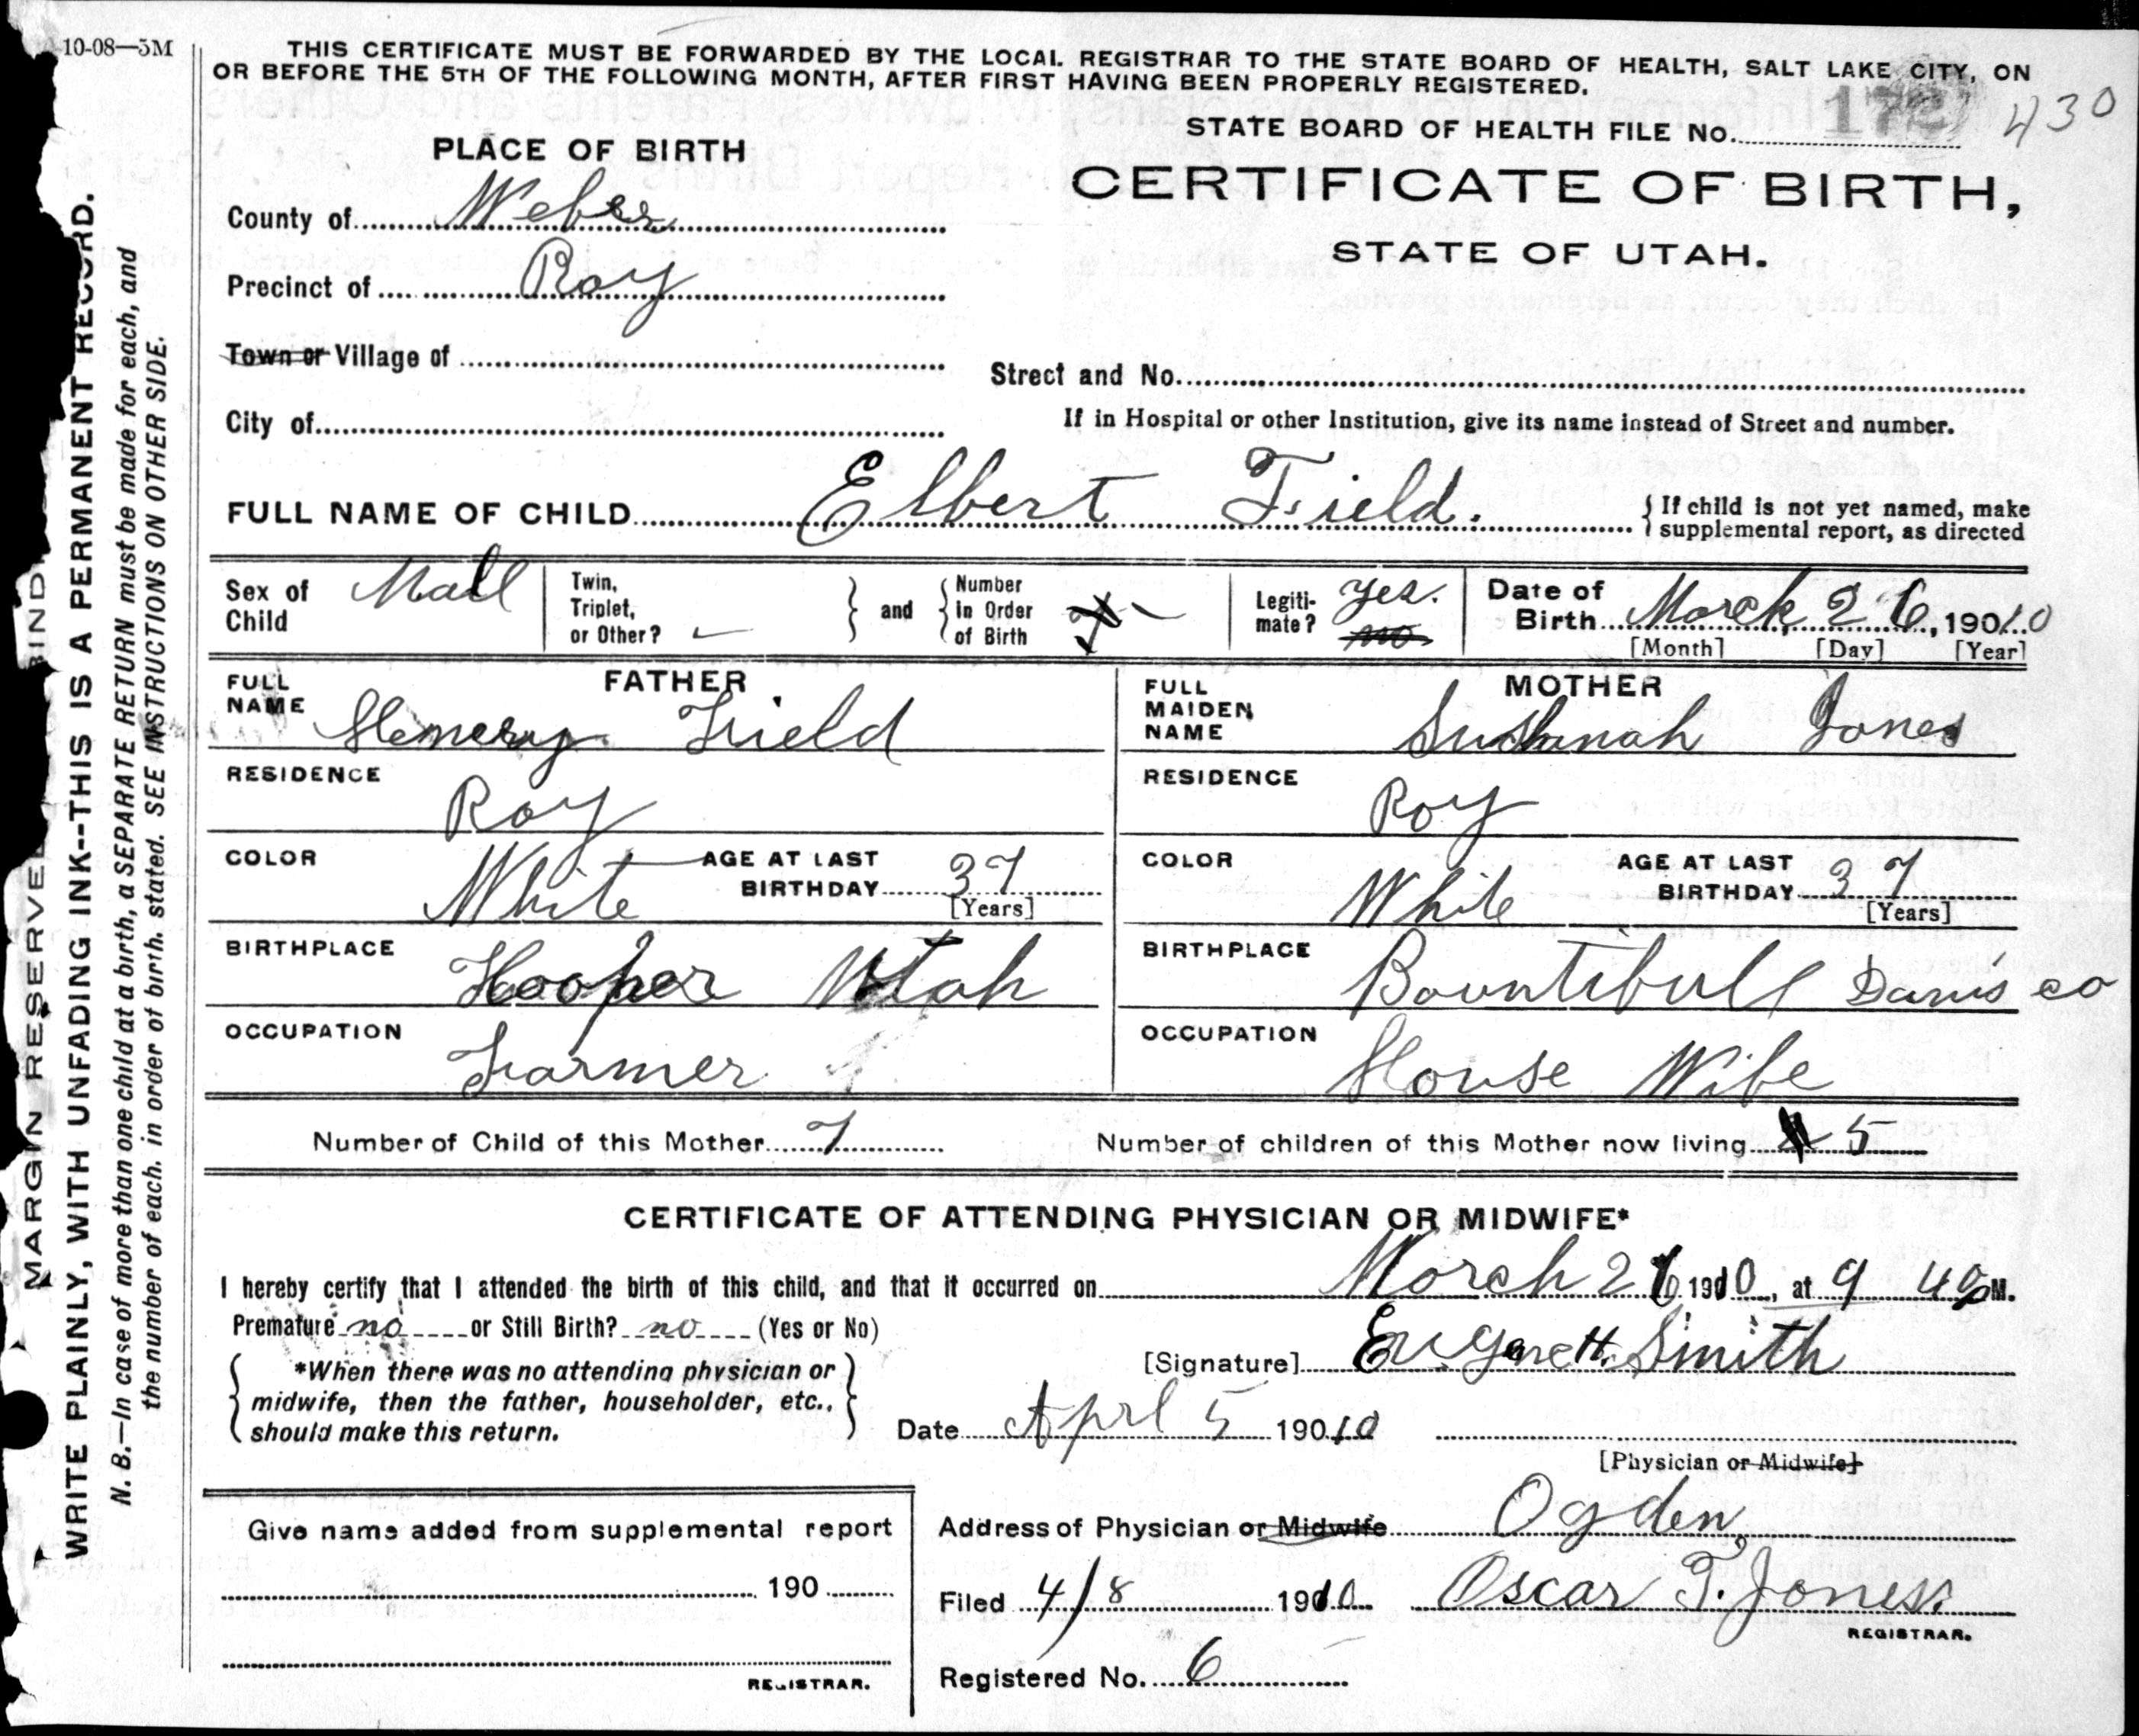 10-08—5M
THIS CERTIFICATE MUST BE FORWARDED BY THE LOCAL REGISTRAR TO THE STATE BOARD OF HEALTH, SALT LAKE CITY, ON
OR BEFORE THE 5TH OF THE FOLLOWING MONTH, AFTER FIRST HAVING BEEN PROPERLY REGISTERED.
STATE BOARD OF HEALTH FILE No. 172 430
PLACE OF BIRTH
CERTIFICATE OF BIRTH,
STATE OF UTAH.
County of Weber
Precinct of Roy
Town or Village of
Street and No.
City of
If in Hospital or other Institution, give its name instead of Street and number.
FULL NAME OF CHILD Elbert Field.
{If child is not yet named, make
supplemental report, as directed
Sex of Child Mall
Twin, Triplet, or Other? –
} and {
Number in Order of Birth –
Legitimate? Yes. no
Date of Birth March 26, 19010
[Month] [Day] [Year]
FATHER
FULL NAME Henery Field
MOTHER
FULL MAIDEN NAME Sushanah Jones
RESIDENCE Roy
RESIDENCE Roy
COLOR White AGE AT LAST BIRTHDAY 37 [Years]
COLOR White AGE AT LAST BIRTHDAY 37 [Years]
BIRTHPLACE Hooper Utah
BIRTHPLACE Bountifull Davis co
OCCUPATION Farmer
OCCUPATION House Wife
Number of Child of this Mother 7
Number of children of this Mother now living 5
CERTIFICATE OF ATTENDING PHYSICIAN OR MIDWIFE*
I hereby certify that I attended the birth of this child, and that it occurred on March 26 1910, at 9 40 PM.
Premature no or Still Birth? no (Yes or No)
*When there was no attending physician or
midwife, then the father, householder, etc.,
should make this return.
[Signature] Eugene H. Smith
Date Aprl 5 19010
[Physician or Midwife]
Give name added from supplemental report
190
REGISTRAR.
Address of Physician or Midwife Ogden
Filed 4/8 1910 Oscar T. Jones.
REGISTRAR.
Registered No. 6
MARGIN RESERVED BIND
WRITE PLAINLY, WITH UNFADING INK--THIS IS A PERMANENT RECORD.
N. B.—In case of more than one child at a birth, a SEPARATE RETURN must be made for each, and
the number of each, in order of birth, stated. SEE INSTRUCTIONS ON OTHER SIDE.